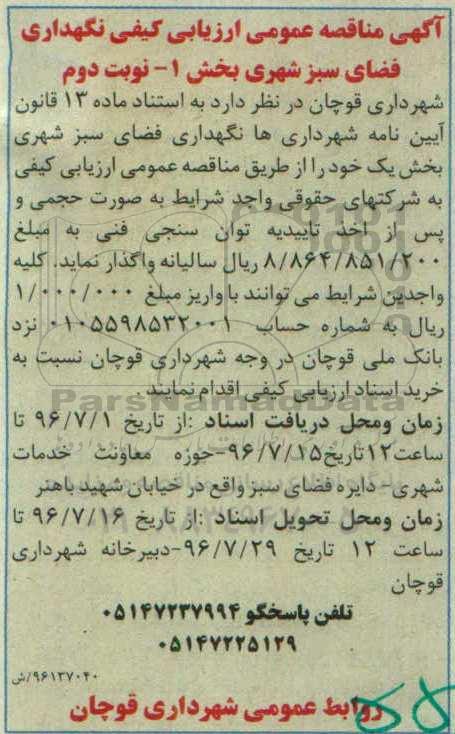 آگهی مناقصه عمومی ارزیابی کیفی نگهداری
فضای سبز شهری بخش ۱- نوبت دوم
شهرداری قوچان در نظر دارد به استناد ماده ۱۳ قانون
آیین نامه شهرداری ها نگهداری فضای سبز شهری
بخش یک خود را از طریق مناقصه عمومی ارزیابی کیفی
به شرکتهای حقوقی واجد شرایط به صورت حجمی و
پس از اخذ تاییدیه توان سنجی فنی به مبلغ
۸/۸۶۴/۸۵۱/۲۰۰ ریال سالیانه واگذار نماید. کلیه
واجدین شرایط می توانند با واریز مبلغ ۱/۰۰۰/۰۰۰
ریال به شماره حساب ۰۱۰۵۵۹۸۵۳۲۰۰۱ نزد
بانک ملی قوچان در وجه شهرداری قوچان نسبت به
خرید اسناد ارزیابی کیفی اقدام نمایند.
ParsNamadData
زمان ومحل دریافت اسناد :از تاریخ ۹۶/۷/۱ تا
ساعت۱۲تاریخ۹۶/۷/۱۵-حوزه معاونت خدمات
شهری- دایره فضای سبز واقع در خیابان شهید باهنر
زمان ومحل تحویل اسناد :از تاریخ ۹۶/۷/۱۶ تا
ساعت ۱۲ تاریخ ۹۶/۷/۲۹-دبیرخانه شهرداری
قوچان
تلفن پاسخگو ۰۵۱۴۷۲۳۷۹۹۴
۰۵۱۴۷۲۲۵۱۲۹
۹۶۱۳۷۰۴۰/ش
روابط عمومی شهرداری قوچان